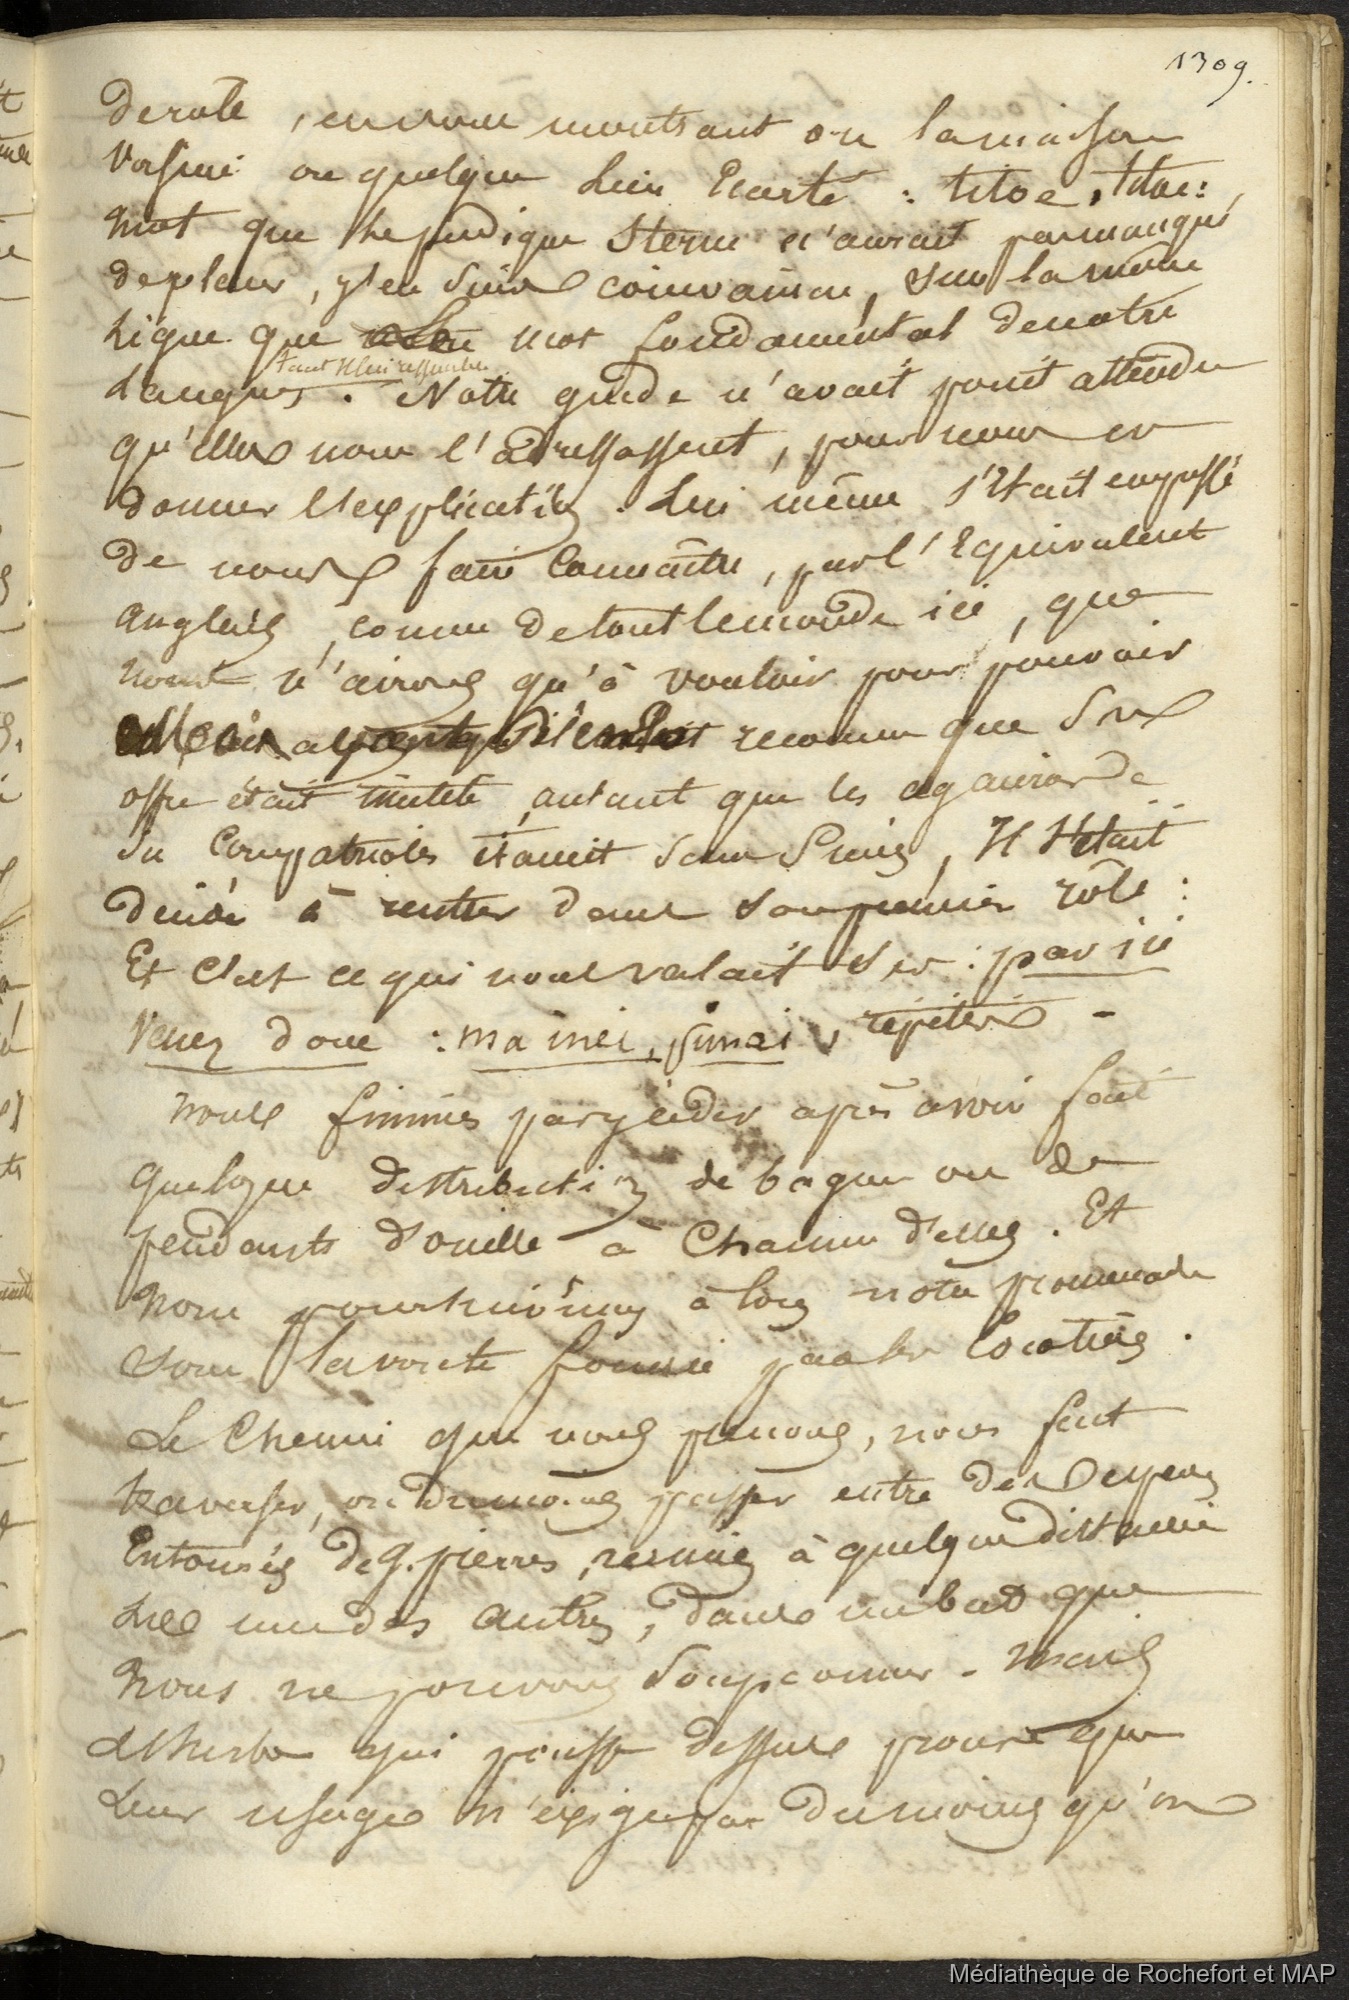 1309.
de role, en nous montrant ou la maison
voisine ou quelque lieu écarté : titoe, titoe :
mot que le pudique Sterne n'aurait pas manqué
de placer, j'en suis convaincu, sur la même
ligne que mot fondamental de notre
tant il lui ressemble
langue. Notre guide n'avait point attendu
qu'elles nous l'adressassent, pour nous en
donner l'explication. Lui même s'était empressé
de nous faire connaître, par l'équivalent
anglais, connu de tout le monde ici, que
nous n'avions qu'à vouloir pour pouvoir
reconnu que ses
offre était inutile, autant que les agaceries de
sa compatriotes étaient sans succès, il s'était
décidé à rentrer dans son premier rôle :
Et c'est ce qui nous valait ses : par ici
Venez donc : ma inei, pimai, répétés -
nous finimes par céder après avoir fait
quelque distribution de bagues ou de
pendants d'oreille à chacune d'elles. Et
nous poursuivimes alors notre promenade
sous la voute fournie par les cocotiers.
Le chemin que nous prenons, nous fait
traverser, ou du moins passer entre des espaces
entourés de g. pierres, réunies à quelque distance
les unes des autres, dans un but que
nous ne pouvons soupçonner - mais
l'herbe qui pousse dessus prouve que
leur usage n'exige pas du moins qu'on
Médiathèque de Rochefort et MAP